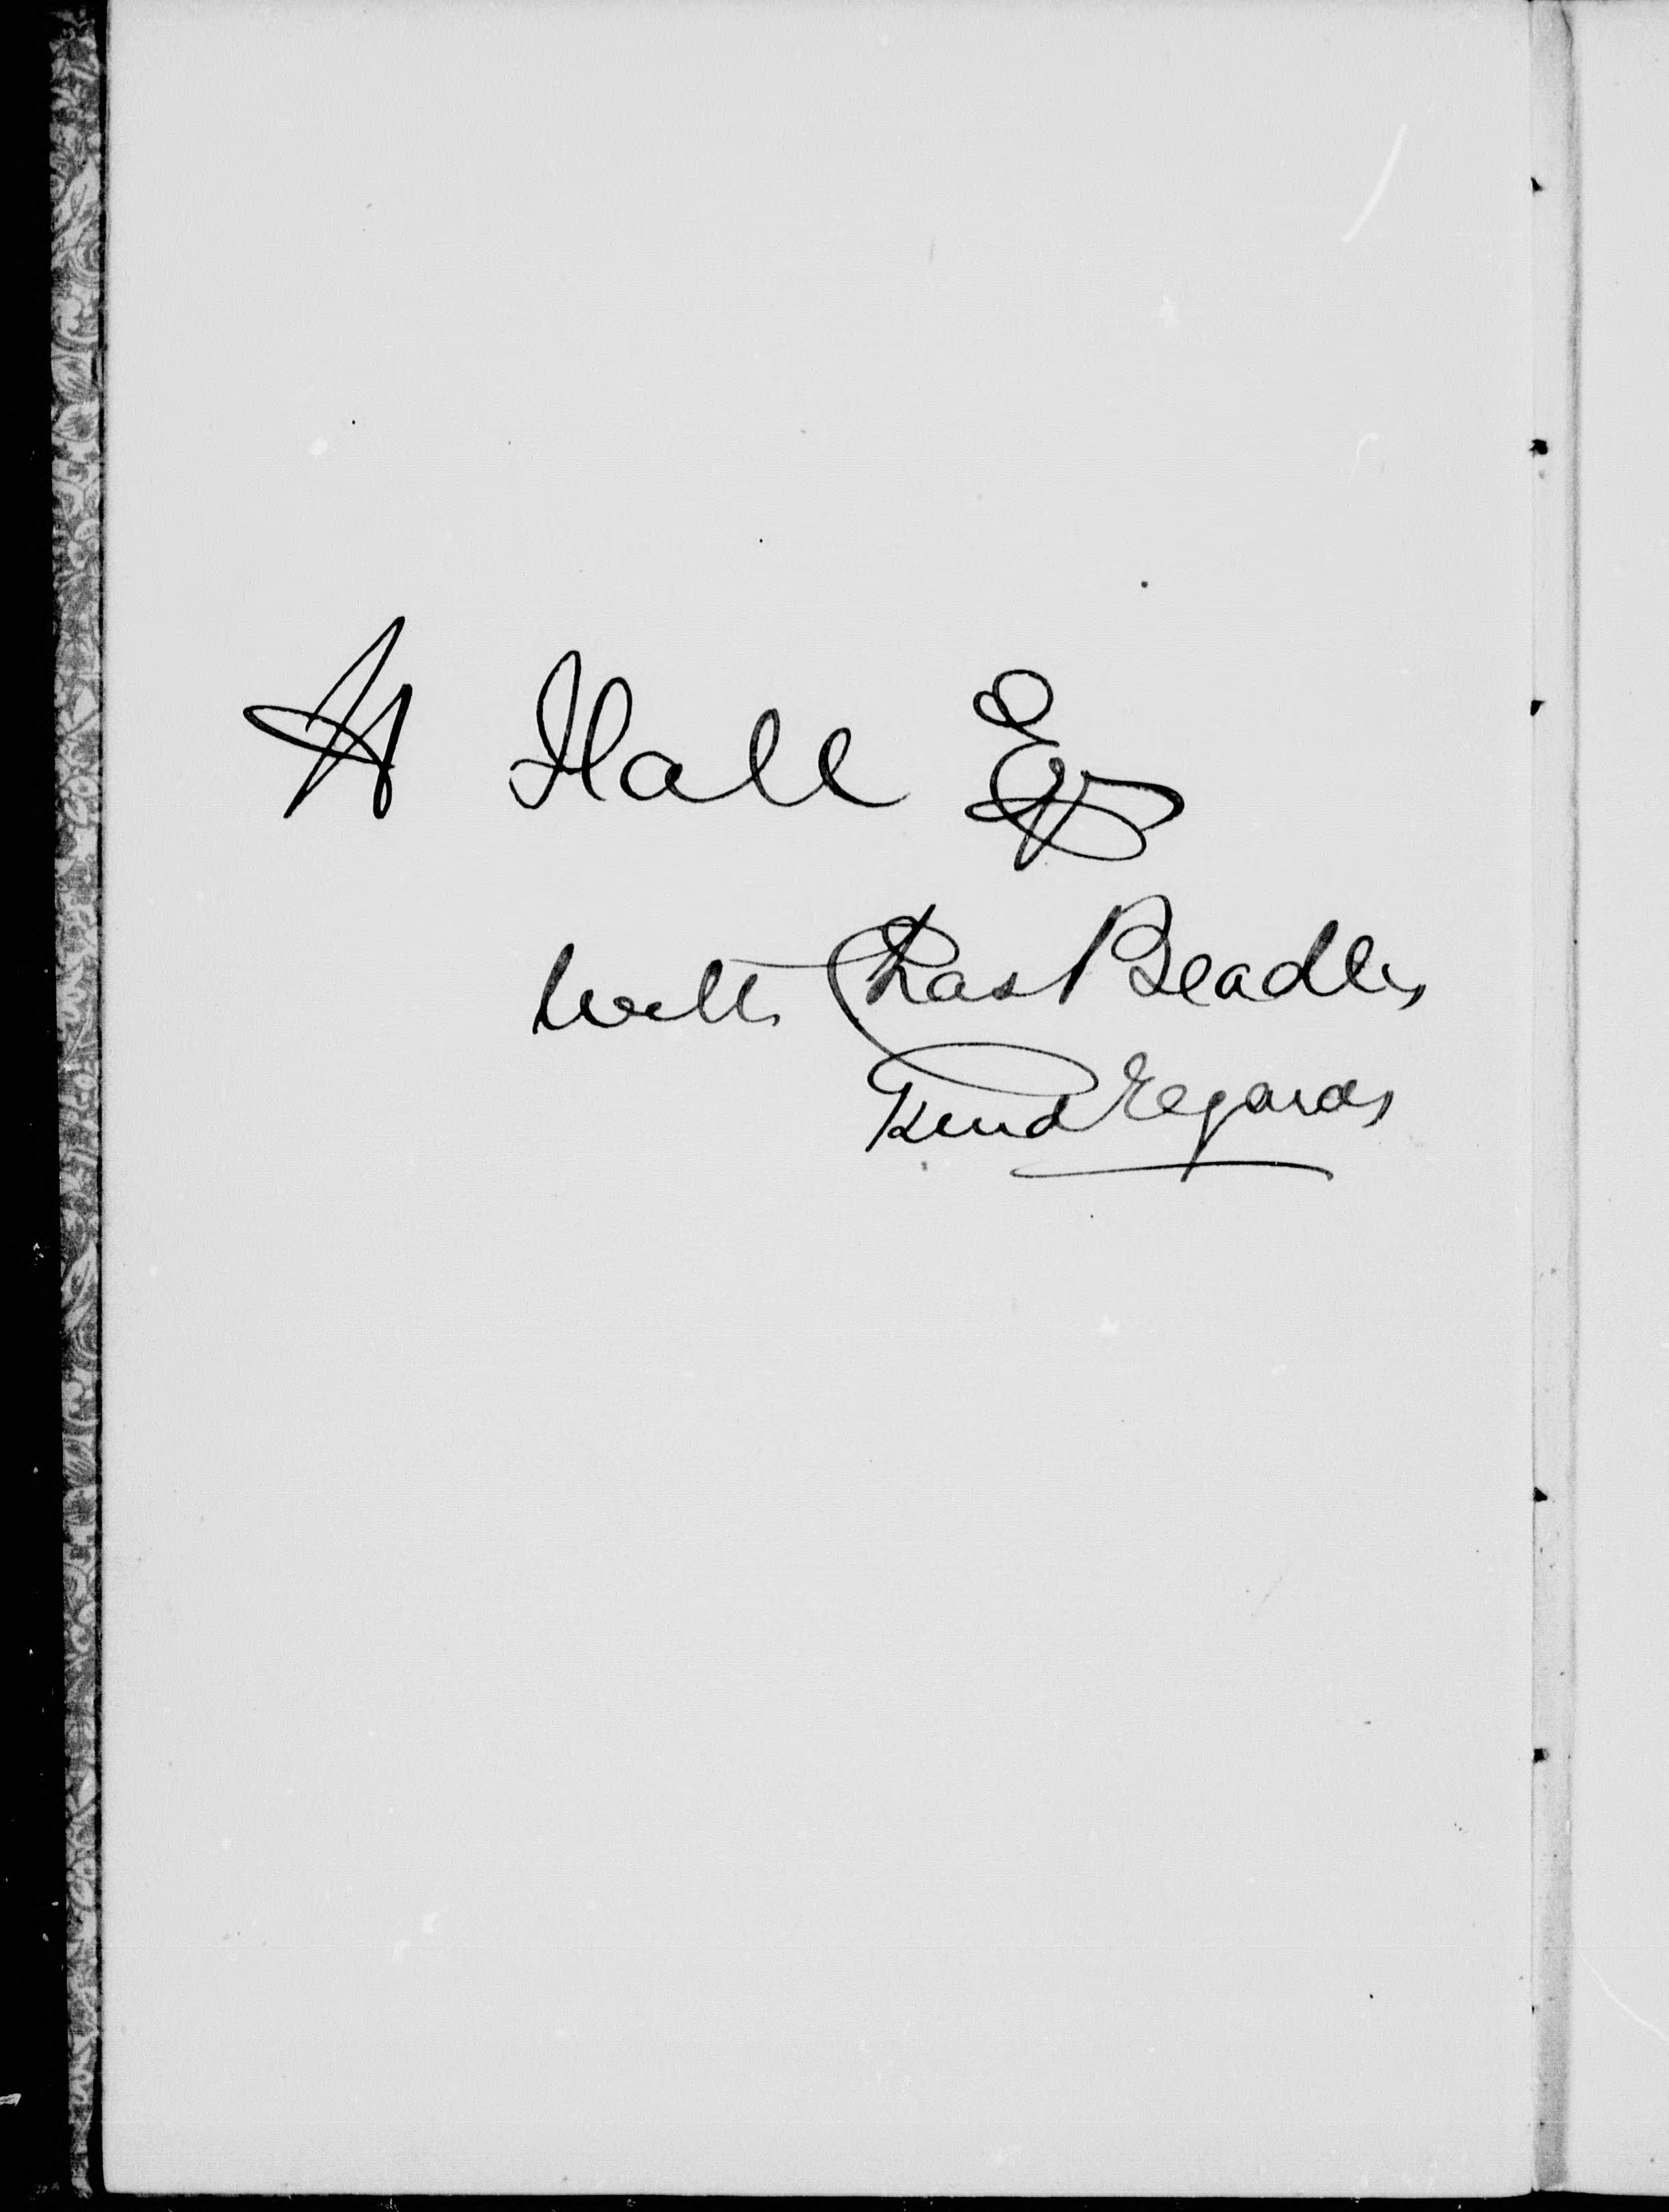 A Hall Esq
with Chas Beadles
Kind Regards